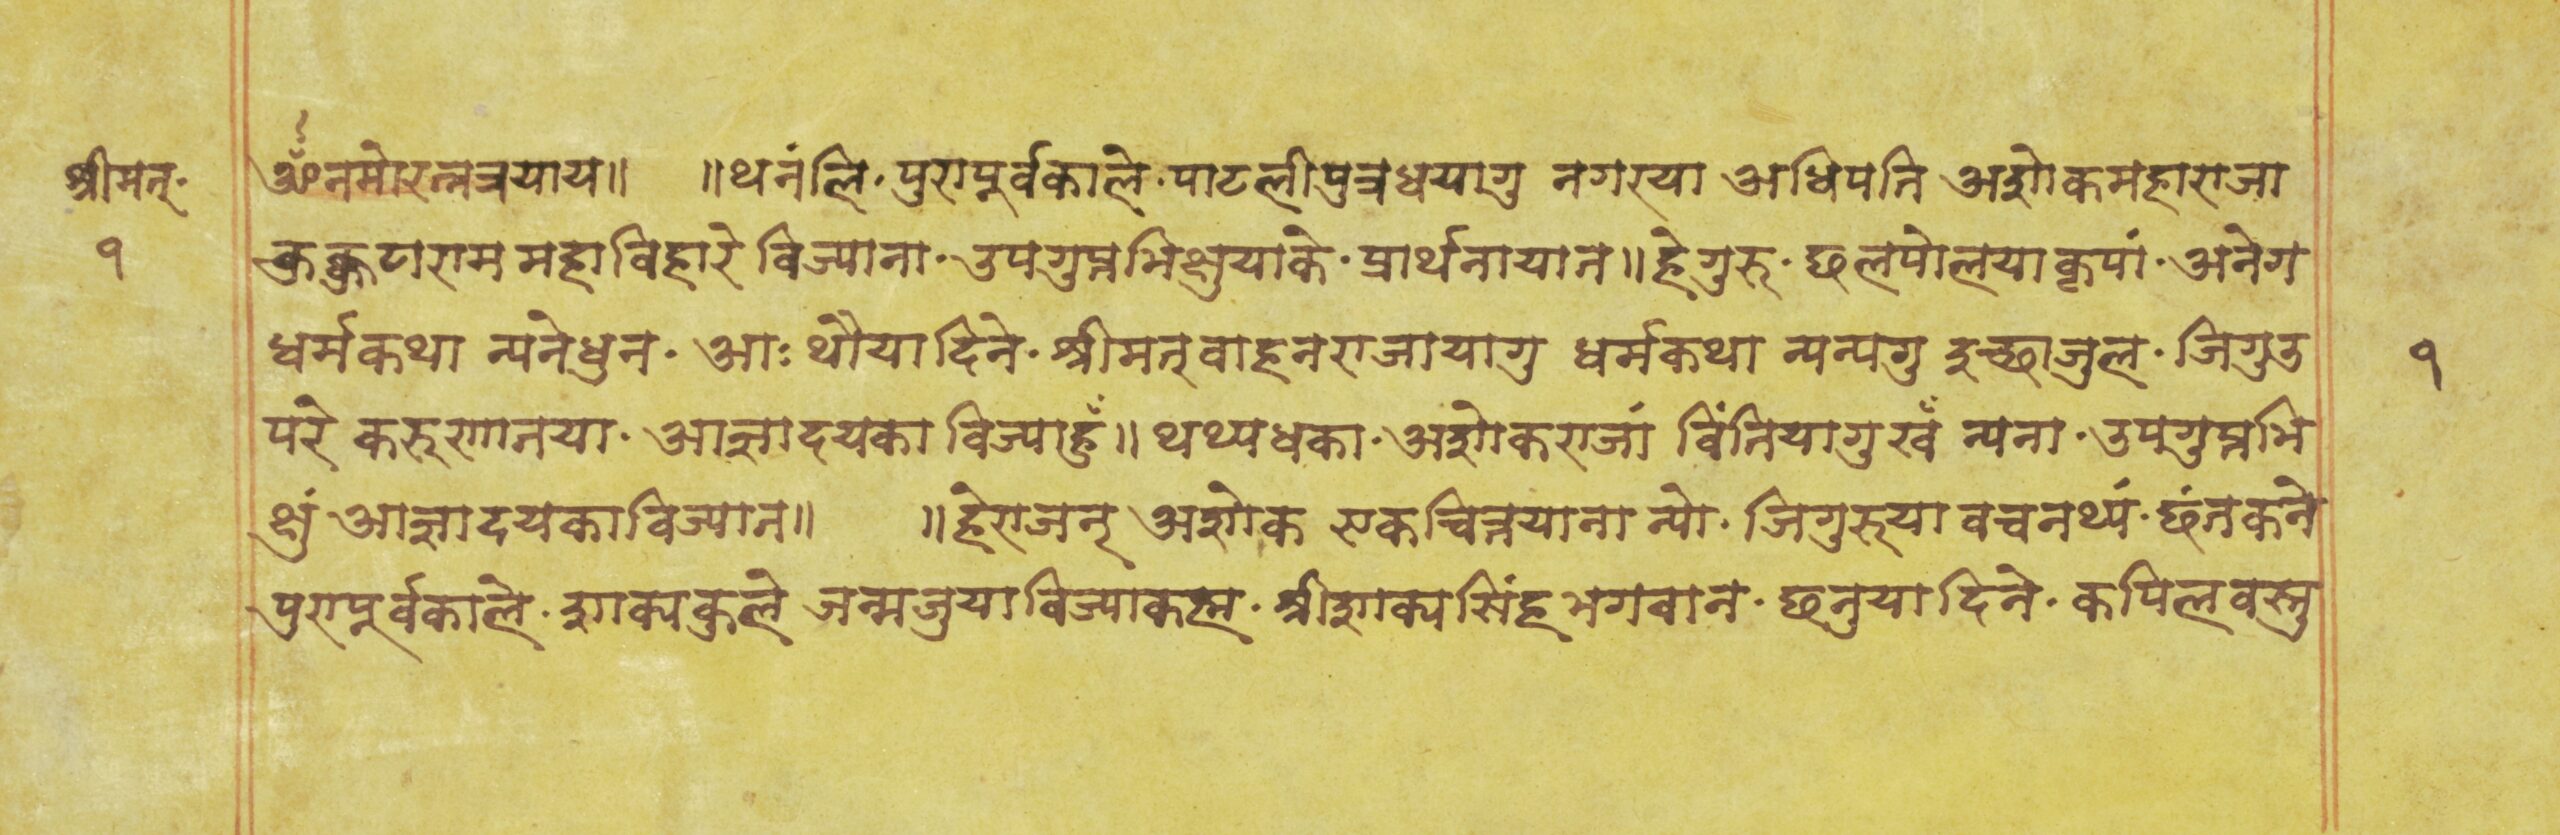 श्रीमत्·
१
ॐनमोरत्नत्रयाय॥ ॥थनंलि·पुरापूर्वकाले·पाटलीपुत्रधयागु नगरया अधिपति अशोकमहाराजा
कुक्कुटाराम महाविहारे विज्याना·उपगुप्तभिक्षुयाके·प्रार्थनायात॥हेगुरू·छलपोलयाकृपां·अनेग
धर्मकथा न्यनेधुन·आः थौयादिने·श्रीमत्वाहनराजायागु धर्मकथा न्यन्यगु इच्छाजुल·जिगुउ
१
परे करूणातया·आज्ञादयका विज्याहुँ॥थथ्यधका·अशोकराजां विंतियागुखँ न्यना·उपगुप्तभि
क्षुं आज्ञादयकाविज्यात॥ ॥हेराजन् अशोक एकचित्तयाना न्यो·जिगुरूया वचनथ्यं·छंतकने
पुरापूर्वकाले·शाक्यकुले जन्मजुयाविज्याकह्म·श्रीशाक्यसिंहभगवान·छनुयादिने·कपिलवस्तु